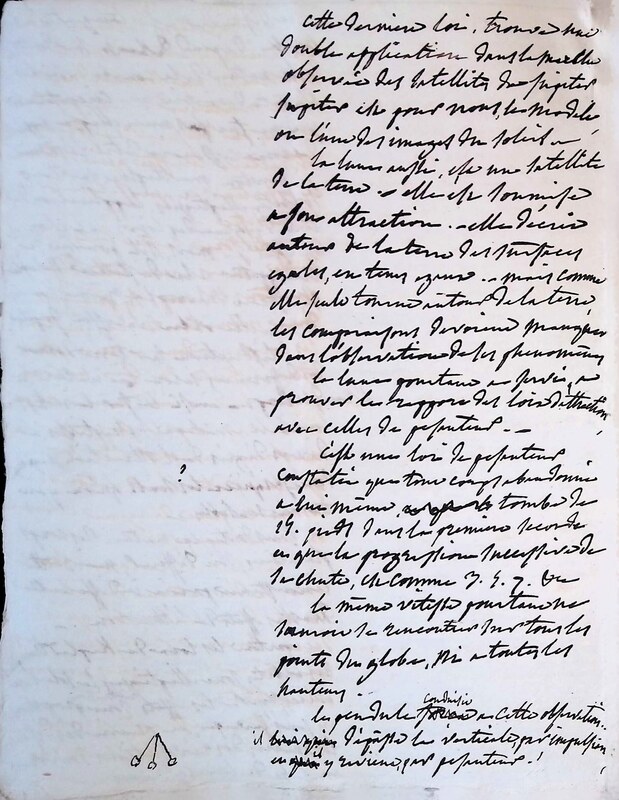 cette derniere loi, trouve une
double application dans la marche
observée des satellites de jupiter
jupiter est pour nous, le modele
ou l'une des images du soleil. –
la lune aussi, est un satellite
de la terre. – elle est soumise
a son attraction. – elle décrit
autour de la terre des surfaces
egales, en tems egaux. – mais comme
elle seule tourne autour de la terre
les comparaisons devoient manquer
dans l'observation de ses phenomenes
la lune pourtant a servi, a
prouver le rapport des loix d'attraction
avec celles de pesanteur. –
c'est une loi de pesanteur
constatée que tout corps abandonné
a lui même, tombe de
15. pieds dans la premiere seconde
et que la progression successive de
sa chute, est comme 3. 5. 7. &c
la même vitesse pourtant ne
sauroit se rencontrer sur tous les
points du globe, ni a toutes les
hauteurs.
conduisit
le pendule a cette observation.
?
il dépasse la verticale, par impulsion
et y revient, par pesanteur.!